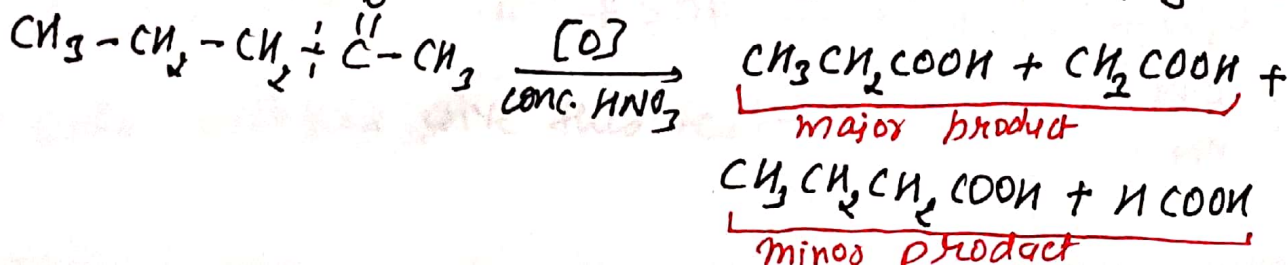 O
CH₃-CH₂-CH₂-C-CH₃ [O] conc. HNO₃ → CH₃CH₂COOH + CH₃COOH +
major product
CH₃CH₂CH₂COOH + HCOOH
minor product